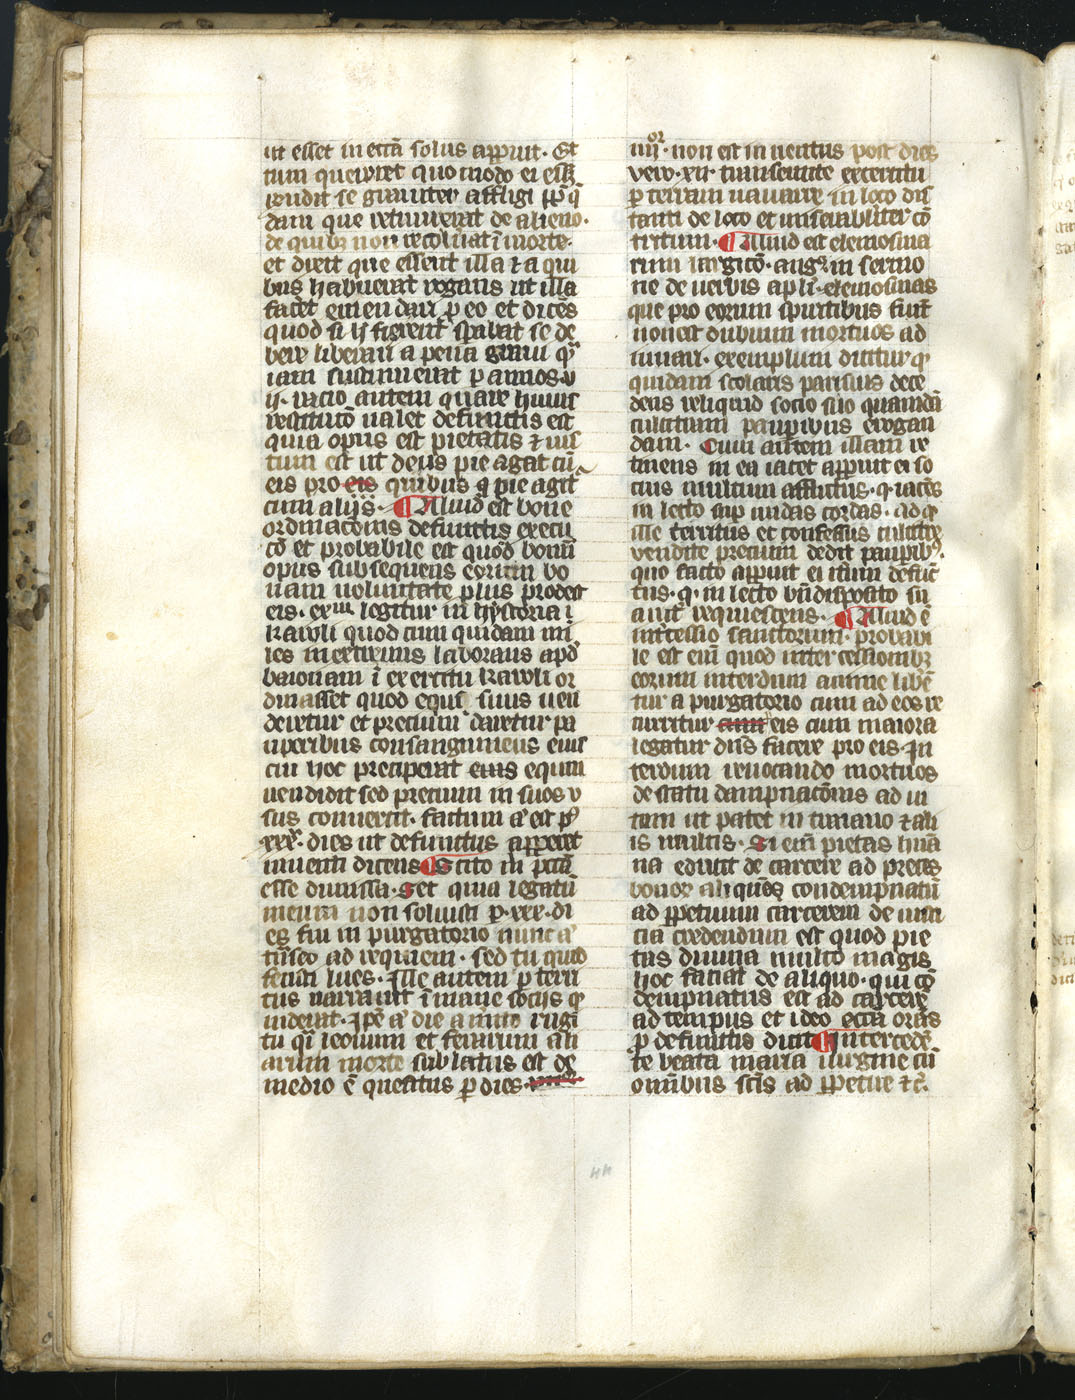 ut esset in ecc̄a solus apparuit. Et
tum quereret quomodo ei esset
rendit se grauiter affligi
dam que retinuerat de alieno.
de quibꝫ non recoluit ī morte.
et dixit que essent illa ⁊ a qui
bus habuerat rogans ut illa
facēt emendari ꝑ eo et dicēs
quod si h̄ fierent sꝑabat se de
bere liberari a pena graui
iam sustinuerat ꝑ annos v
ij. racio autem quare huius
restitutō ualet defunctis est
quia opus est pietatis ⁊ ius
tum est ut deus pie agat cū
eis pro eis quibus q̄ pie agit̄
cum alijs. ¶ Aliud est bone
ordinacōnis defunctis execu
cō et probabile est quod bonū
opus subsequens eorum bo
nam uoluntate plus prodest
eis. exᵐ legitur in hystoria
karoli quod cum quidam mi
les in extremis laborans apd̄
baionam ī exercitu karoli or
dinasset quod equs suus uen
deretur et precium daretur pa
uperibus consanguineus eius
cui hoc preceperat eius equum
uendidit sed precium in suos v
sus conuertit. factum est
xxx. dies ut defunctus apperēt
inuenti dicens ¶ Scito m̄ pctā
esse dimissa. Set quia legatū
meum non soluisti ꝑ. xxx. di
es fui in purgatorio nunc
tūseo ad requiem. sed tu quod
fecisti lues. Ille autem ꝑterri
tus narrauit ī mane socijs
uiderat. Ipē a die a mūo rugi
tu qi leonum et ferarum ali
arum morte sublatus est de
medio ē quesitus ꝑ dies
iiijᵒʳ. non est inuentus post dies
vero. xij. transeunte exercitu
ꝑ terram nauarre in loco dis
tanti de loco et miserabiliter cō
tritum. ¶ Aliud est elemosina
rum largicō. augꝰ in sermo
ne de uerbis apl̄i. elemosinas
que pro eorum spiritibus fiūt
non est dubium mortuos ad
iuuari. exemplum dicitur
quidam scolaris parisius dece
dens reliquid socio suo quamdā
culcitram pauperibus erogan
dam. Cum autem illam re
tinens in ea iacet apparuit ei so
cius multum afflictus. q. iacēs
in lecto sup nudas cordas. ad q
ille territus et confessus culcitꝫ
vendite precium dedit pauperibꝰ.
quo facto apparuit ei iterum defūc
tus. q. in lecto bn̄ disposito su
auit̄ requiescens. ¶ Aliud ē
intcessio sanctorum. probabi
le est eim̄ quod intercessionibꝫ
eorum interdum anime libē
tur a purgatorio cum ad eos re
curritur cum eis cum maiora
legatur dn̄s facere pro eis. In
terdum reuocando mortuos
de statu dampnacōnis ad ui
tam ut patet in traiano ⁊ ali
is multis. Si eim̄ pietas hūā
na educit de carcere ad preces
bonor aliquēs condempnatū
ad ꝑpetuum carcerem de iusti
cia credendum est quod pie
tas diuina multo magis
hoc faciat de aliquo. qui cō
dempnatus est ad carcerē
ad tempus et ideo ecc̄a orās
ꝑ defunctis dicit ¶ Intercedē
te beata maria uirgine cū
omībus scīs ad ꝑpetue ⁊c̄.